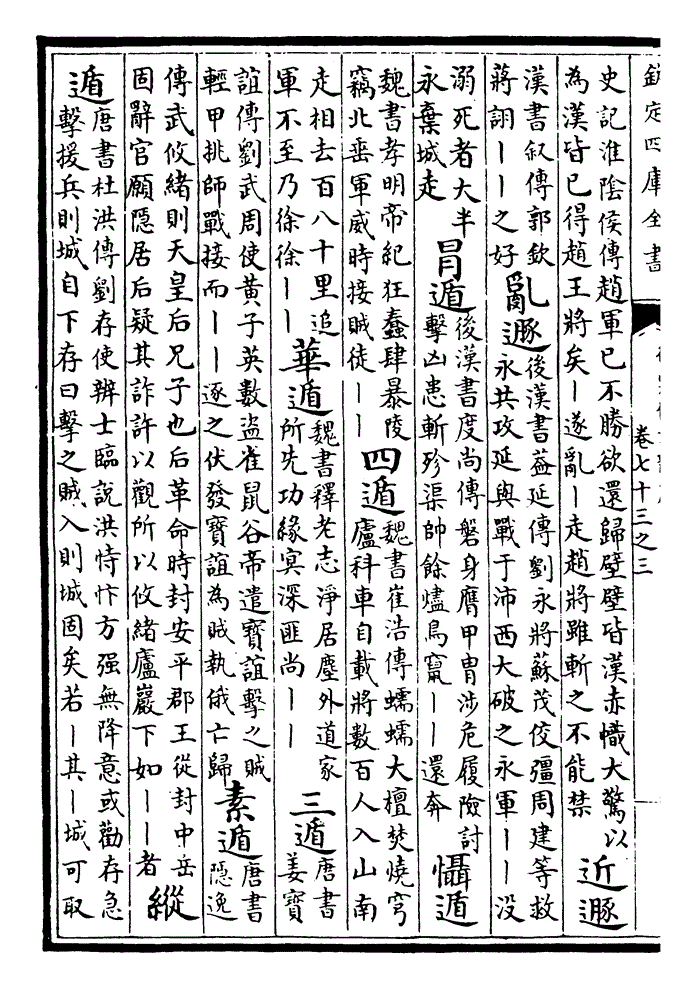 欽定四庫全書
卷七十三之三
史記淮陰侯傳趙軍已不勝欲還歸壁壁皆漢赤幟大驚以
為漢皆已得趙王將矣丨遂亂丨走趙將雖斬之不能禁
近遯
漢書叙傳郭欽
蔣詡丨丨之好
亂遯
後漢書葢延傳劉永將蘇茂佼彊周建等救
永共攻延與戰于沛西大破之永軍丨丨没
溺死者大半
永棄城走
冐遁
後漢書度尚傳磐身膺甲胄涉危履險討
擊凶患斬殄渠帥餘燼鳥竄丨丨還奔
懾遁
魏書孝明帝紀狂蠢肆暴陵
竊北垂軍威時接賊徒丨丨
四遁
魏書崔浩傳蠕蠕大檀焚燒穹
廬科車自載將數百人入山南
走相去百八十里追
軍不至乃徐徐丨丨
華遁
魏書釋老志淨居塵外道家
所先功緣冥深匪尚丨丨
三遁
唐書
姜寶
誼傳劉武周使黄子英數盜雀鼠谷帝遣寶誼擊之賊
輕甲挑師戰接而丨丨逐之伏發寶誼為賊執俄亡歸
素遁
唐書
隱逸
傳武攸緒則天皇后兄子也后革命時封安平郡王從封中岳
固辭官願隱居后疑其詐許以觀所以攸緒廬巖下如丨丨者
縱
遁
唐書杜洪傳劉存使辨士臨説洪恃忭方强無降意或勸存急
擊援兵則城自下存曰擊之賊入則城固矣若丨其丨城可取